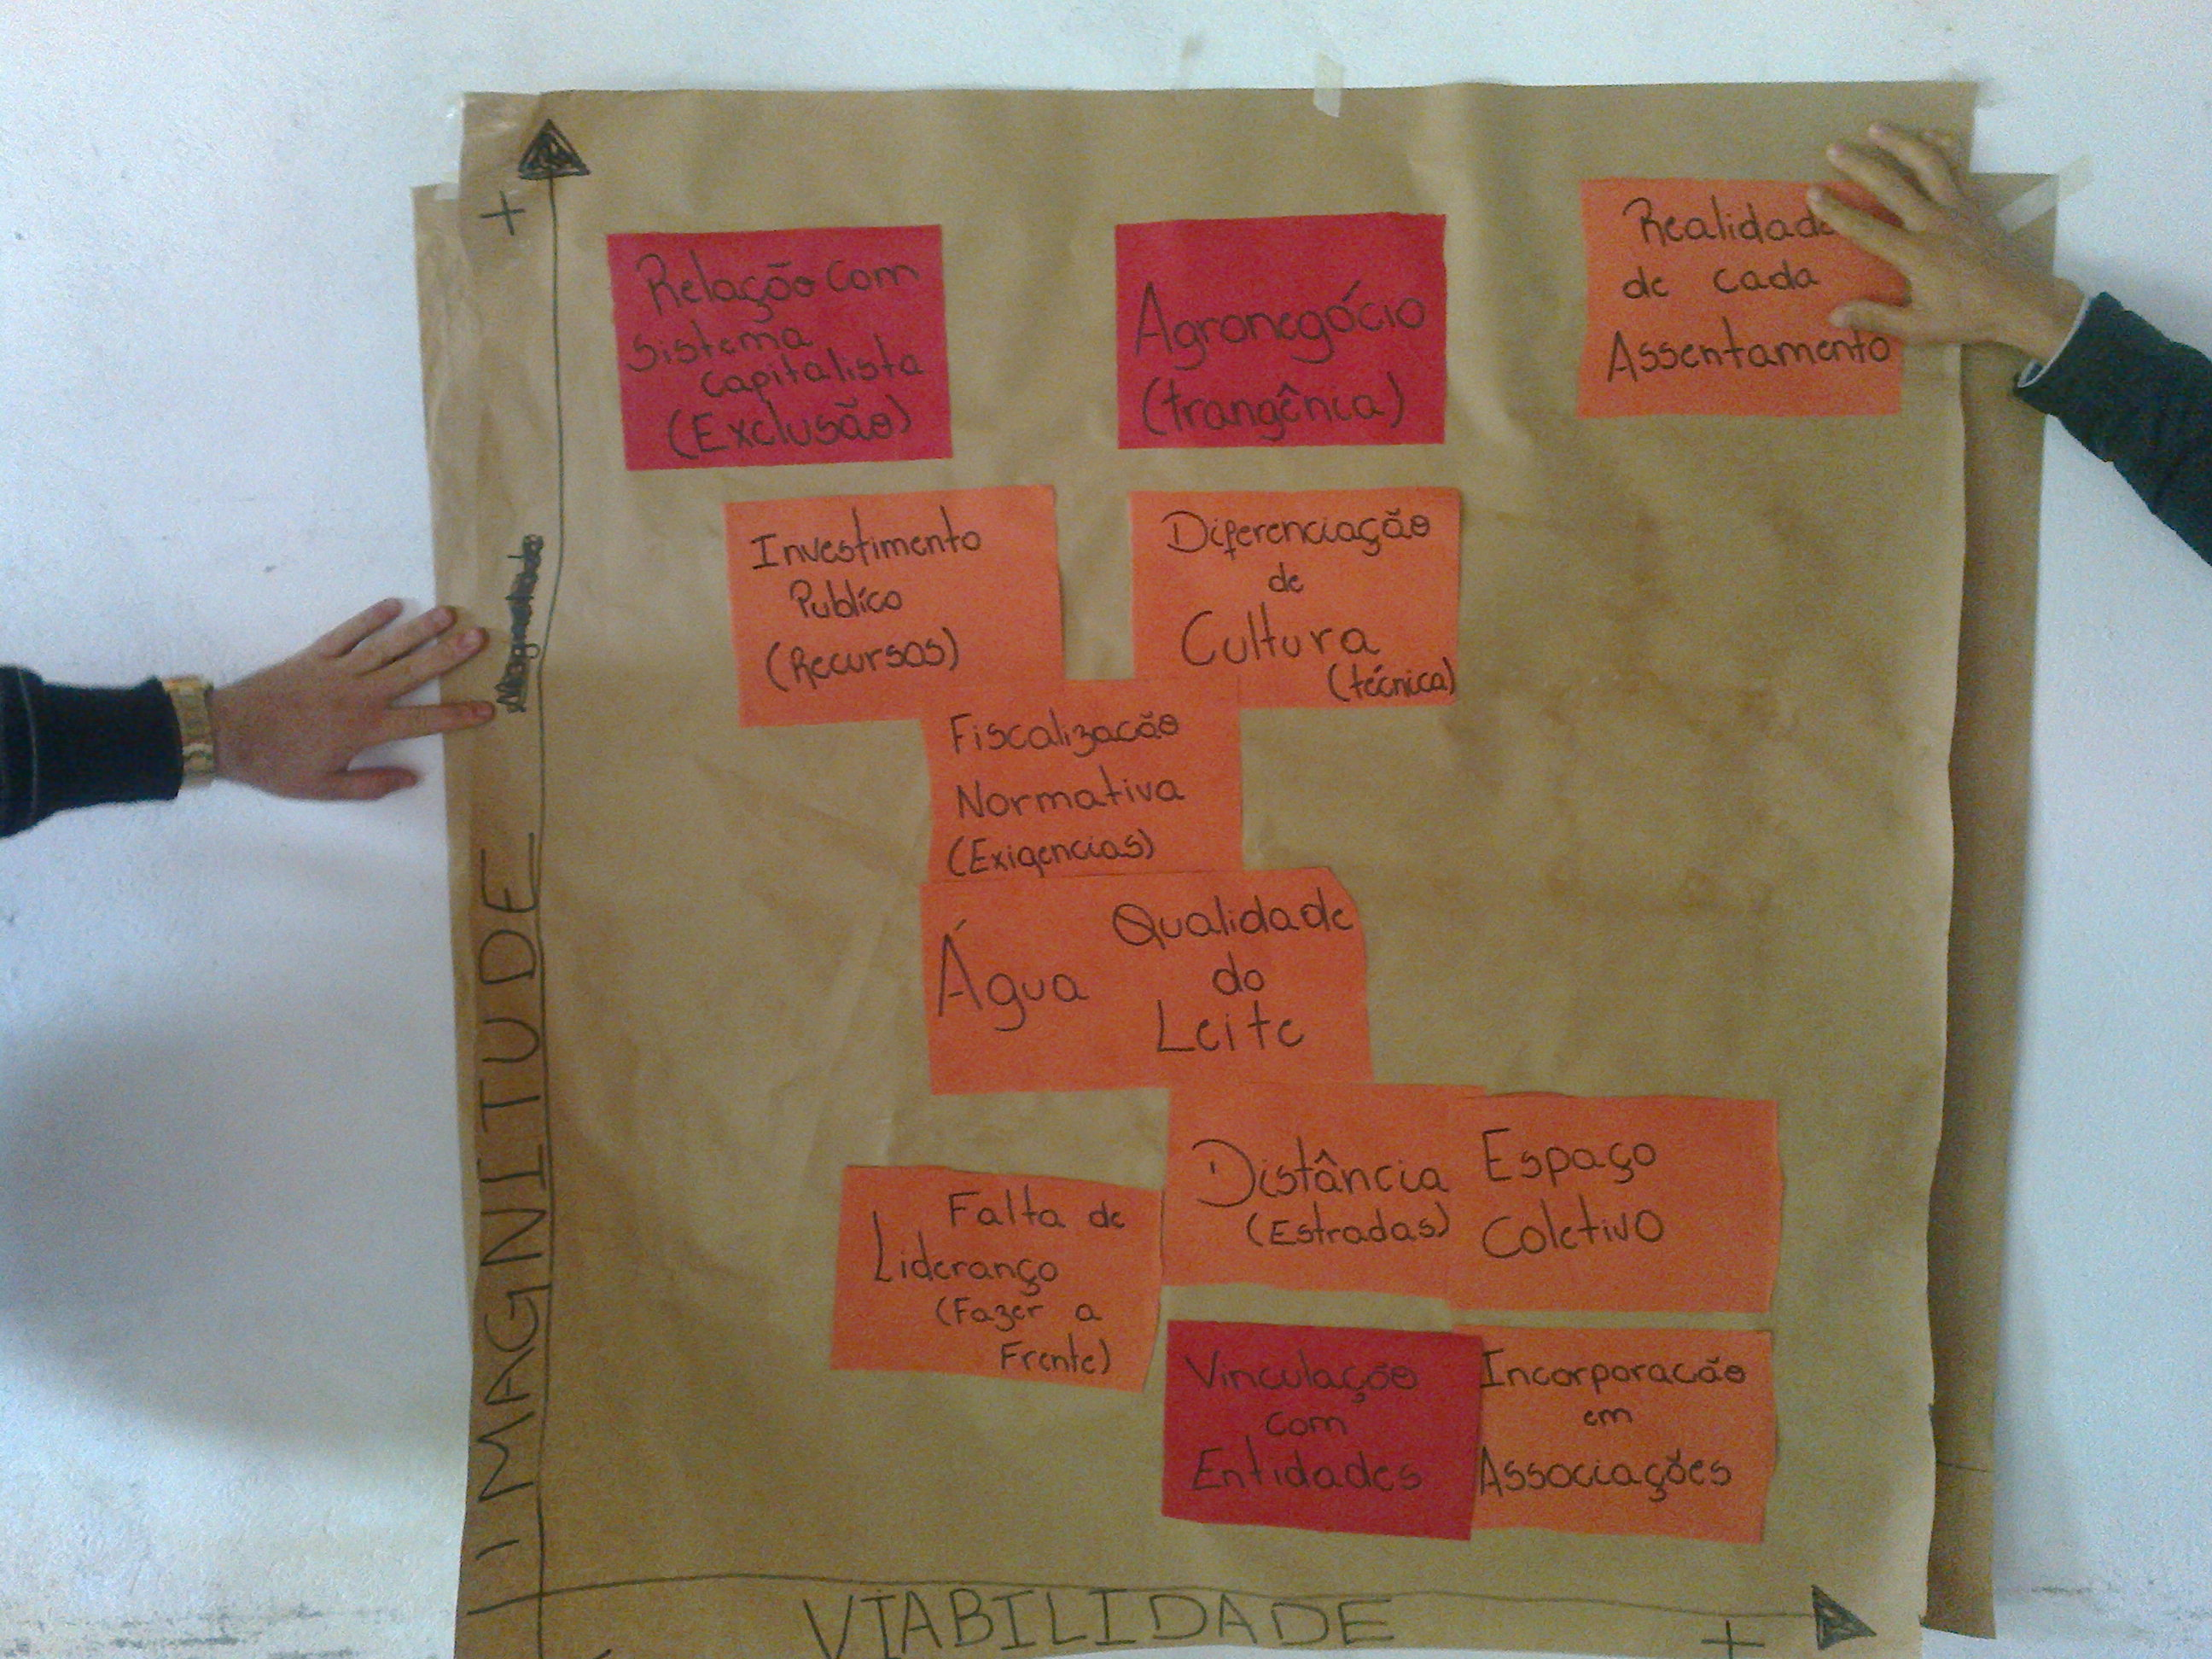 +
Relação com
sistema
capitalista
(Exclusão)
Agronegócio
(trangênca)
Realidade
de cada
Assentamento
Investimento
Publíco
(Recursos)
Diferenciação
de
Cultura
(técnica)
Fiscalizacão
Normativa
(Exigencias)
Água
Qualidade
do
Leite
Distância
(Estradas)
Espaço
Coletivo
Falta de
Lideranço
(Fazer a
Frente)
Vinculação
com
Entidades
Incorporacão
em
Associações
MAGNITUDE
VIABILIDADE
+